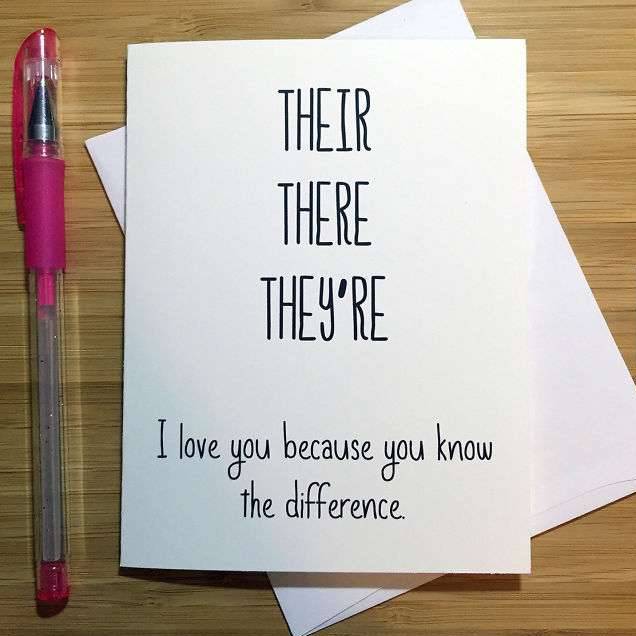 THEIR
THERE
THEY'RE
I love you because you know
the difference.